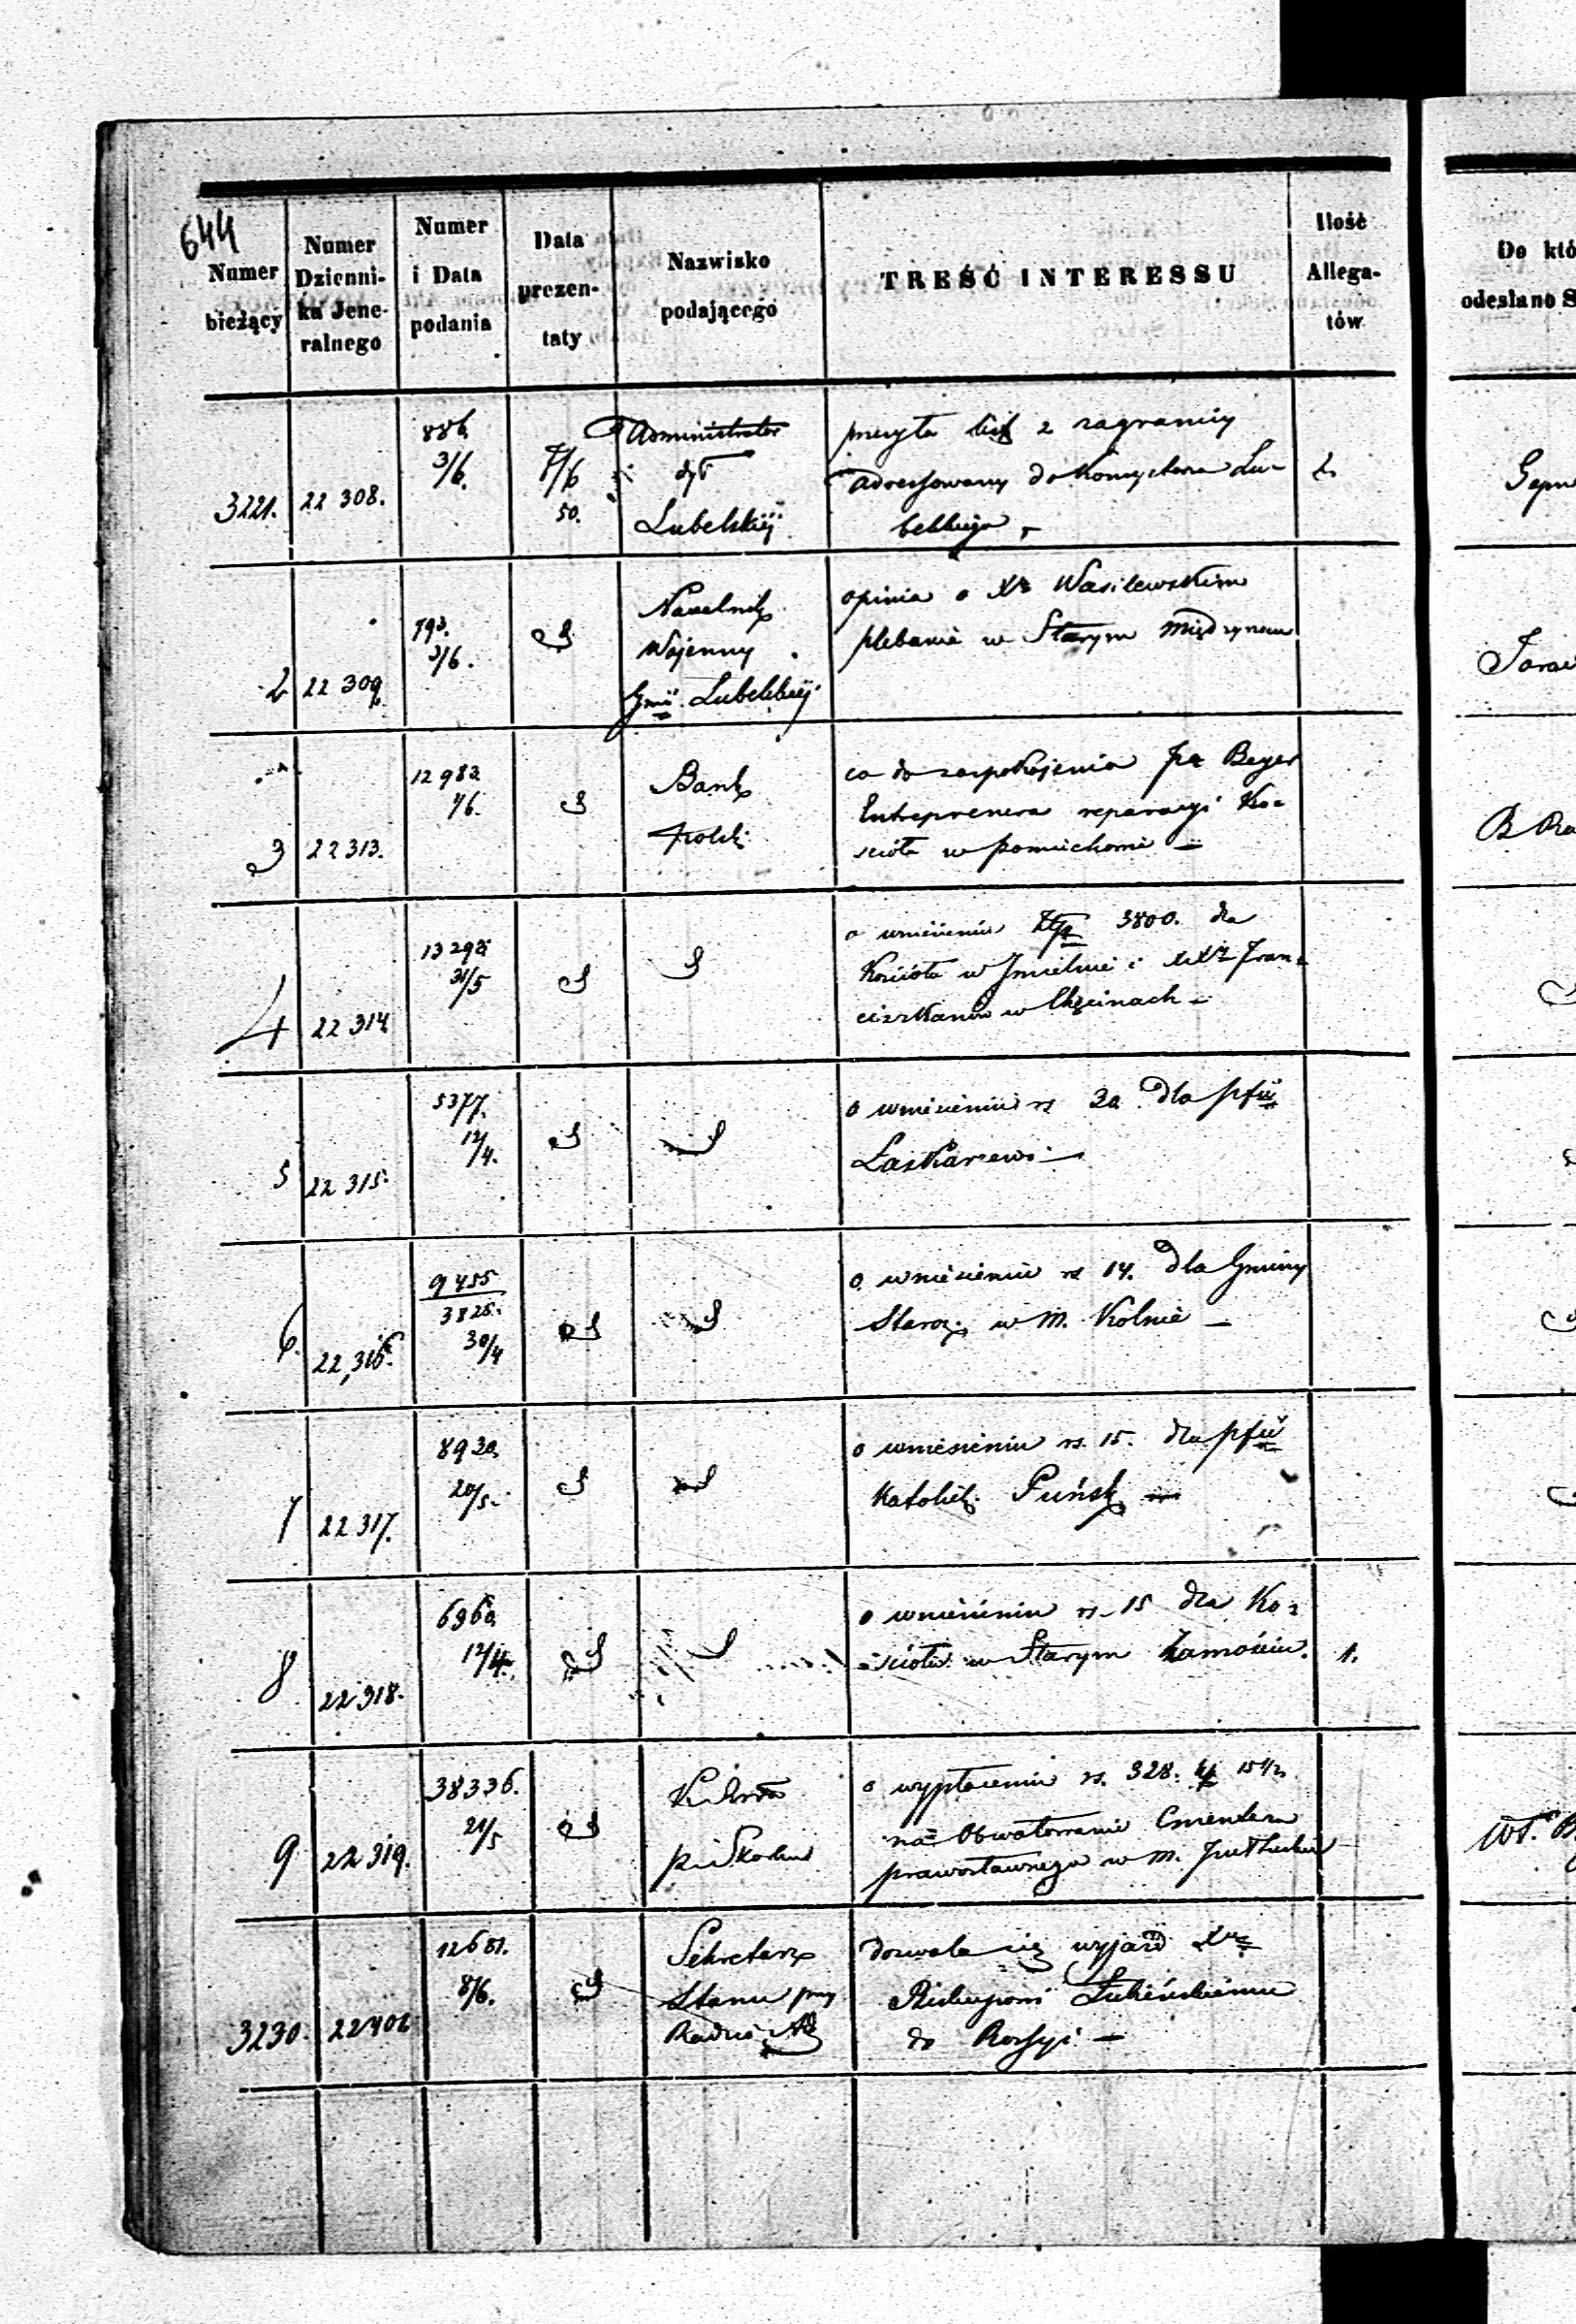 644
Numer bieżący
Numer Dzienni- ka Jene- ralnego
Numer i Data podania
Data prezen- taty
Nazwisko podającego
TREŚĆ INTERESSU
Ilość Allega- tów
Do któ
odesłano S
3221. 22 308. 886 3/6. 7/6 50. Administrator dyt Lubelskiéj
przesyła list z zagranicy
adressowany do Konsystorza Lu-
belskiego
2 22 309 793. 3/6. Naczelnik Wojenny Gnii Lubelskiéj
opinia o Xdz Wasilewskim
plebanie w Starym
3 22 313. 12 982 1/6. Bank Polski
co do zaspokojenia Beyer
Entreprenera reparacyi Ko-
ścioła w Pomiechowie —
B Ra
4 22 314 13 298 31/5
o wniesieniu 3800. dla
Kościoła w Imielnie i XX Fran-
ciszkanów w Chęcinach —
5 22 315. 5377. 12/4.
o wniesieniu rs 30 dla pfii
Łaskarzew —
6. 22,316. 9455 3825. 30/4
o wniesieniu rs 14. dla Gminy
Staroz. w m. Kolnie —
7 22 317. 8930 20/5.
o wniesieniu rs. 15. dla pfii
Katolik. Puńsk —
8 22 318. 6960 12/4.
o wniesieniu rs. 15 dla Ko-
ścioła w Starym Zamościu. 1.
9 22 319. 38336. 21/5
o wypłacenie rs. 328. 15 1/2
na Obwałowanie Cmentarza
prawosławnego w m.
3230. 22406 12681. 8/6. Sekretarz Stanu przy Radzie
dozwala się wyjazd
Biskupowi Łubieńskiemu
do Rossyi —